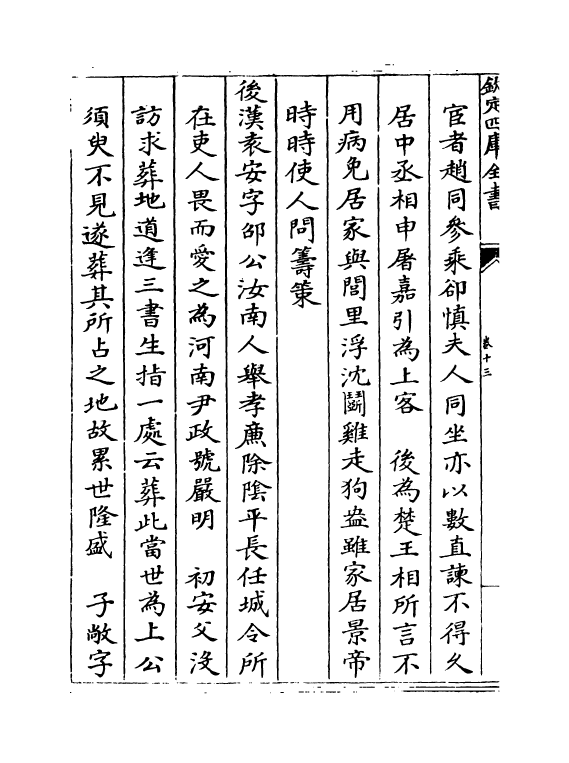 欽定四庫全書
卷十三
宦者趙同參乘卻慎夫人同坐亦以數直諫不得久
居中丞相申屠嘉引為上客　後為楚王相所言不
用病免居家與閭里浮沈鬬雞走狗盎雖家居景帝
時時使人問籌策
後漢袁安字邵公汝南人舉孝廉除陰平長任城令所
在吏人畏而愛之為河南尹政號嚴明　初安父沒
訪求葬地道逢三書生指一處云葬此當世為上公
須臾不見遂葬其所占之地故累世隆盛　子敞字